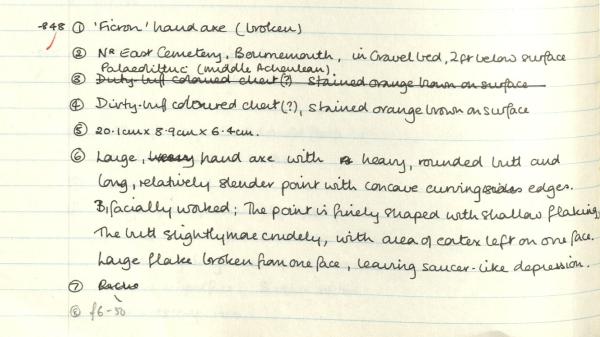 -848 ① 'Ficron' hand axe (broken)
② Nr East Cemetery, Bournemouth, in Gravel bed, 2ft below surface
Palaeolithic (middle Acheulean).
③ Dirty-buff coloured chert(?) stained orange brown on surface
④ Dirty-buff coloured chert(?), stained orange brown on surface
⑤ 20.1cm x 8.9cm x 6.4cm.
⑥ Large, heavy hand axe with a heavy, rounded butt and
long, relatively slender point with concave curving sides edges.
Bifacially worked; The point is finely shaped with shallow flaking,
The butt slightly more crudely, with area of cortex left on one face.
Large flake broken from one face, leaving saucer-like depression.
⑦
⑧ £6-50